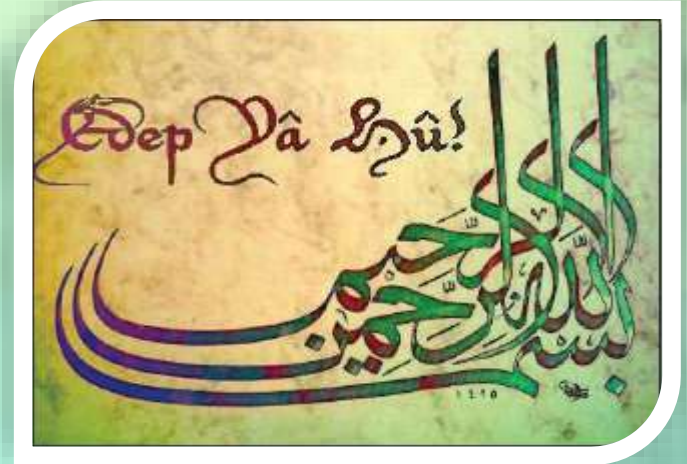 Edep Yâ Hû!
بسم الله الرحمن الرحيم